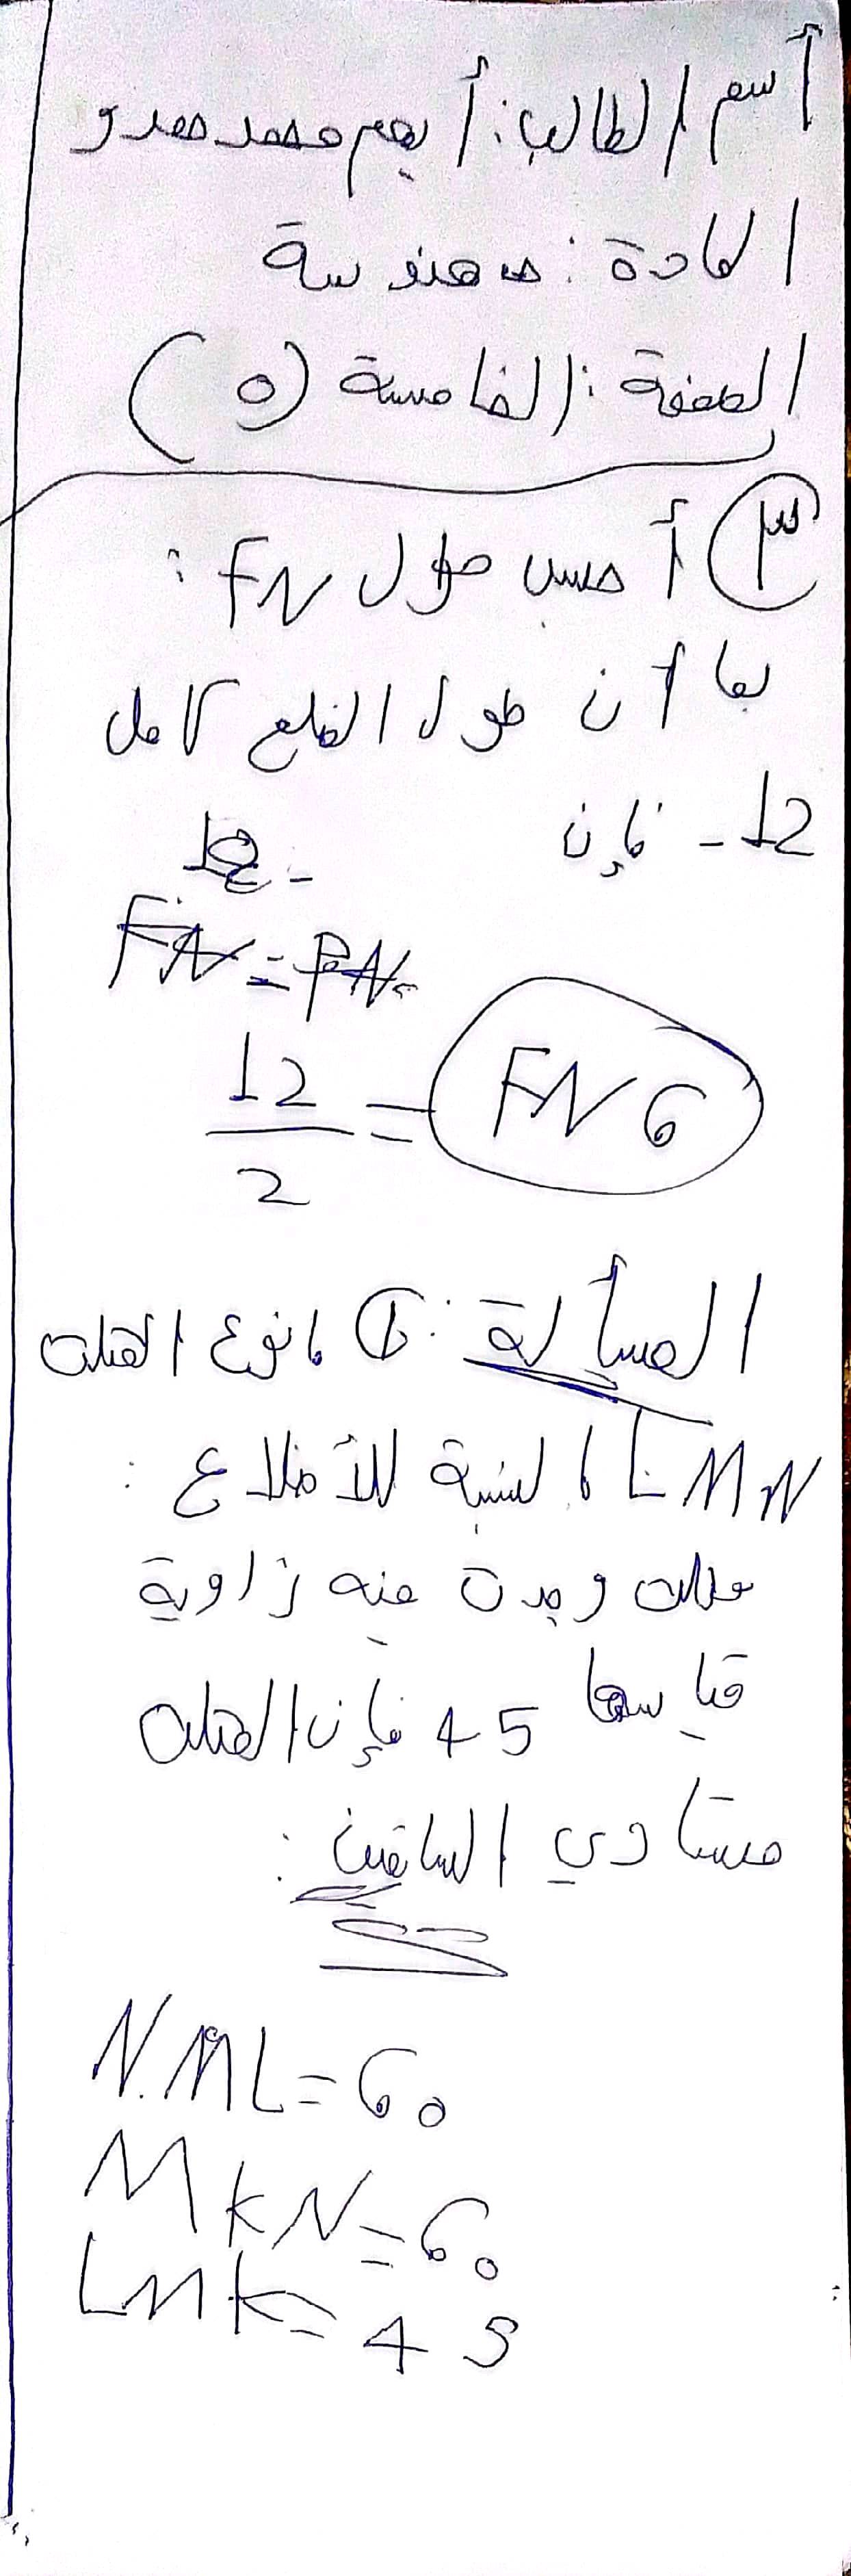 أسم الطالب: أيهم محمد حمدو
المادة: هندسة
الصفحة: الخامسة (٥)
٣ أحسب طول FN :
بما أن طول الضلع كامل
12 - فإن
FN = FN
12/2 = FN 6
المسألة: ① مانوع المثلث
LMN بالنسبة للأضلاع :
مثلث وجدت فيه زاوية
قياسها 45 فإن المثلث
متساوي الساقين :
NML = 60
MKN = 60
LMK = 45